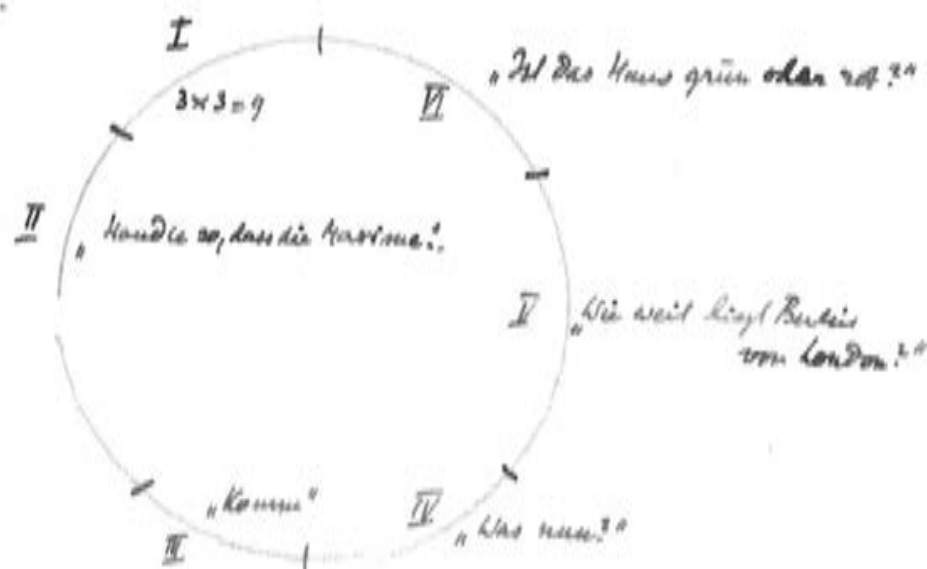 I
3×3=9
VI
„Ist das Haus grün oder rot?“
II
„Handle so, dass die Maxime!.
V
„Wie weit liegt Berlin
von London?“
„Komm“
III
IV
„Was nun?“